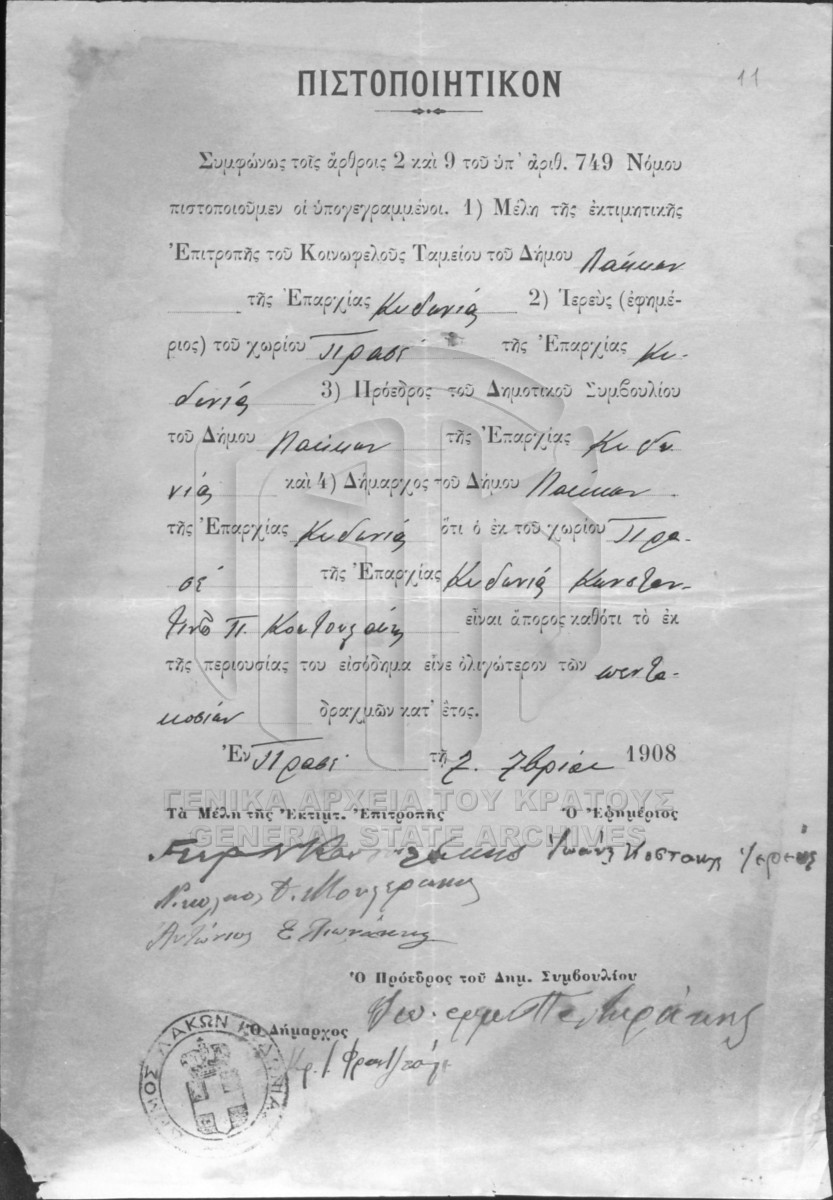 11
ΠΙΣΤΟΠΟΙΗΤΙΚΟΝ
Συμφώνως τοῖς ἄρθροις 2 καὶ 9 τοῦ ὑπ᾽ ἀριθ. 749 Νόμου
πιστοποιοῦμεν οἱ ὑπογεγραμμένοι. 1) Μέλη τῆς ἐκτιμητικῆς
Ἐπιτροπῆς τοῦ Κοινωφελοῦς Ταμείου τοῦ Δήμου Λάκκων
τῆς Ἐπαρχίας Κυδωνίας 2) Ἱερεὺς (ἐφημέ-
ριος) τοῦ χωρίου Πρασὲ τῆς Ἐπαρχίας Κυ-
δωνίας 3) Πρόεδρος τοῦ Δημοτικοῦ Συμβουλίου
τοῦ Δήμου Λάκκων τῆς Ἐπαρχίας Κυδω
νίας καὶ 4) Δήμαρχος τοῦ Δήμου Λάκκων
τῆς Ἐπαρχίας Κυδωνίας ὅτι ὁ ἐκ τοῦ χωρίου Πρα-
σὲ τῆς Ἐπαρχίας Κυδωνίας Κωνσταν-
τῖνος Π. εἶναι ἄπορος καθότι τὸ ἐκ
τῆς περιουσίας του εἰσόδημα εἶνε ὀλιγώτερον τῶν πεντα-
κοσίων δραχμῶν κατ᾽ ἔτος.
Ἐν Πρασὲ τῇ 7βρίου 1908
ΓΕΝΙΚΑ ΑΡΧΕΙΑ ΤΟΥ ΚΡΑΤΟΥΣ
GENERAL STATE ARCHIVES
Τὰ Μέλη τῆς Ἐκτιμτ. Ἐπιτροπῆς Ὁ Ἐφημέριος
Ἰωάν. Κοστάκης ἱερεὺς
Νικόλαος
Ἀντώνιος Ε.
Ὁ Πρόεδρος τοῦ Δημ. Συμβουλίου
Ὁ Δήμαρχος
ΔΗΜΟΣ ΛΑΚΩΝ ΚΥΔΩΝΙΑΣ